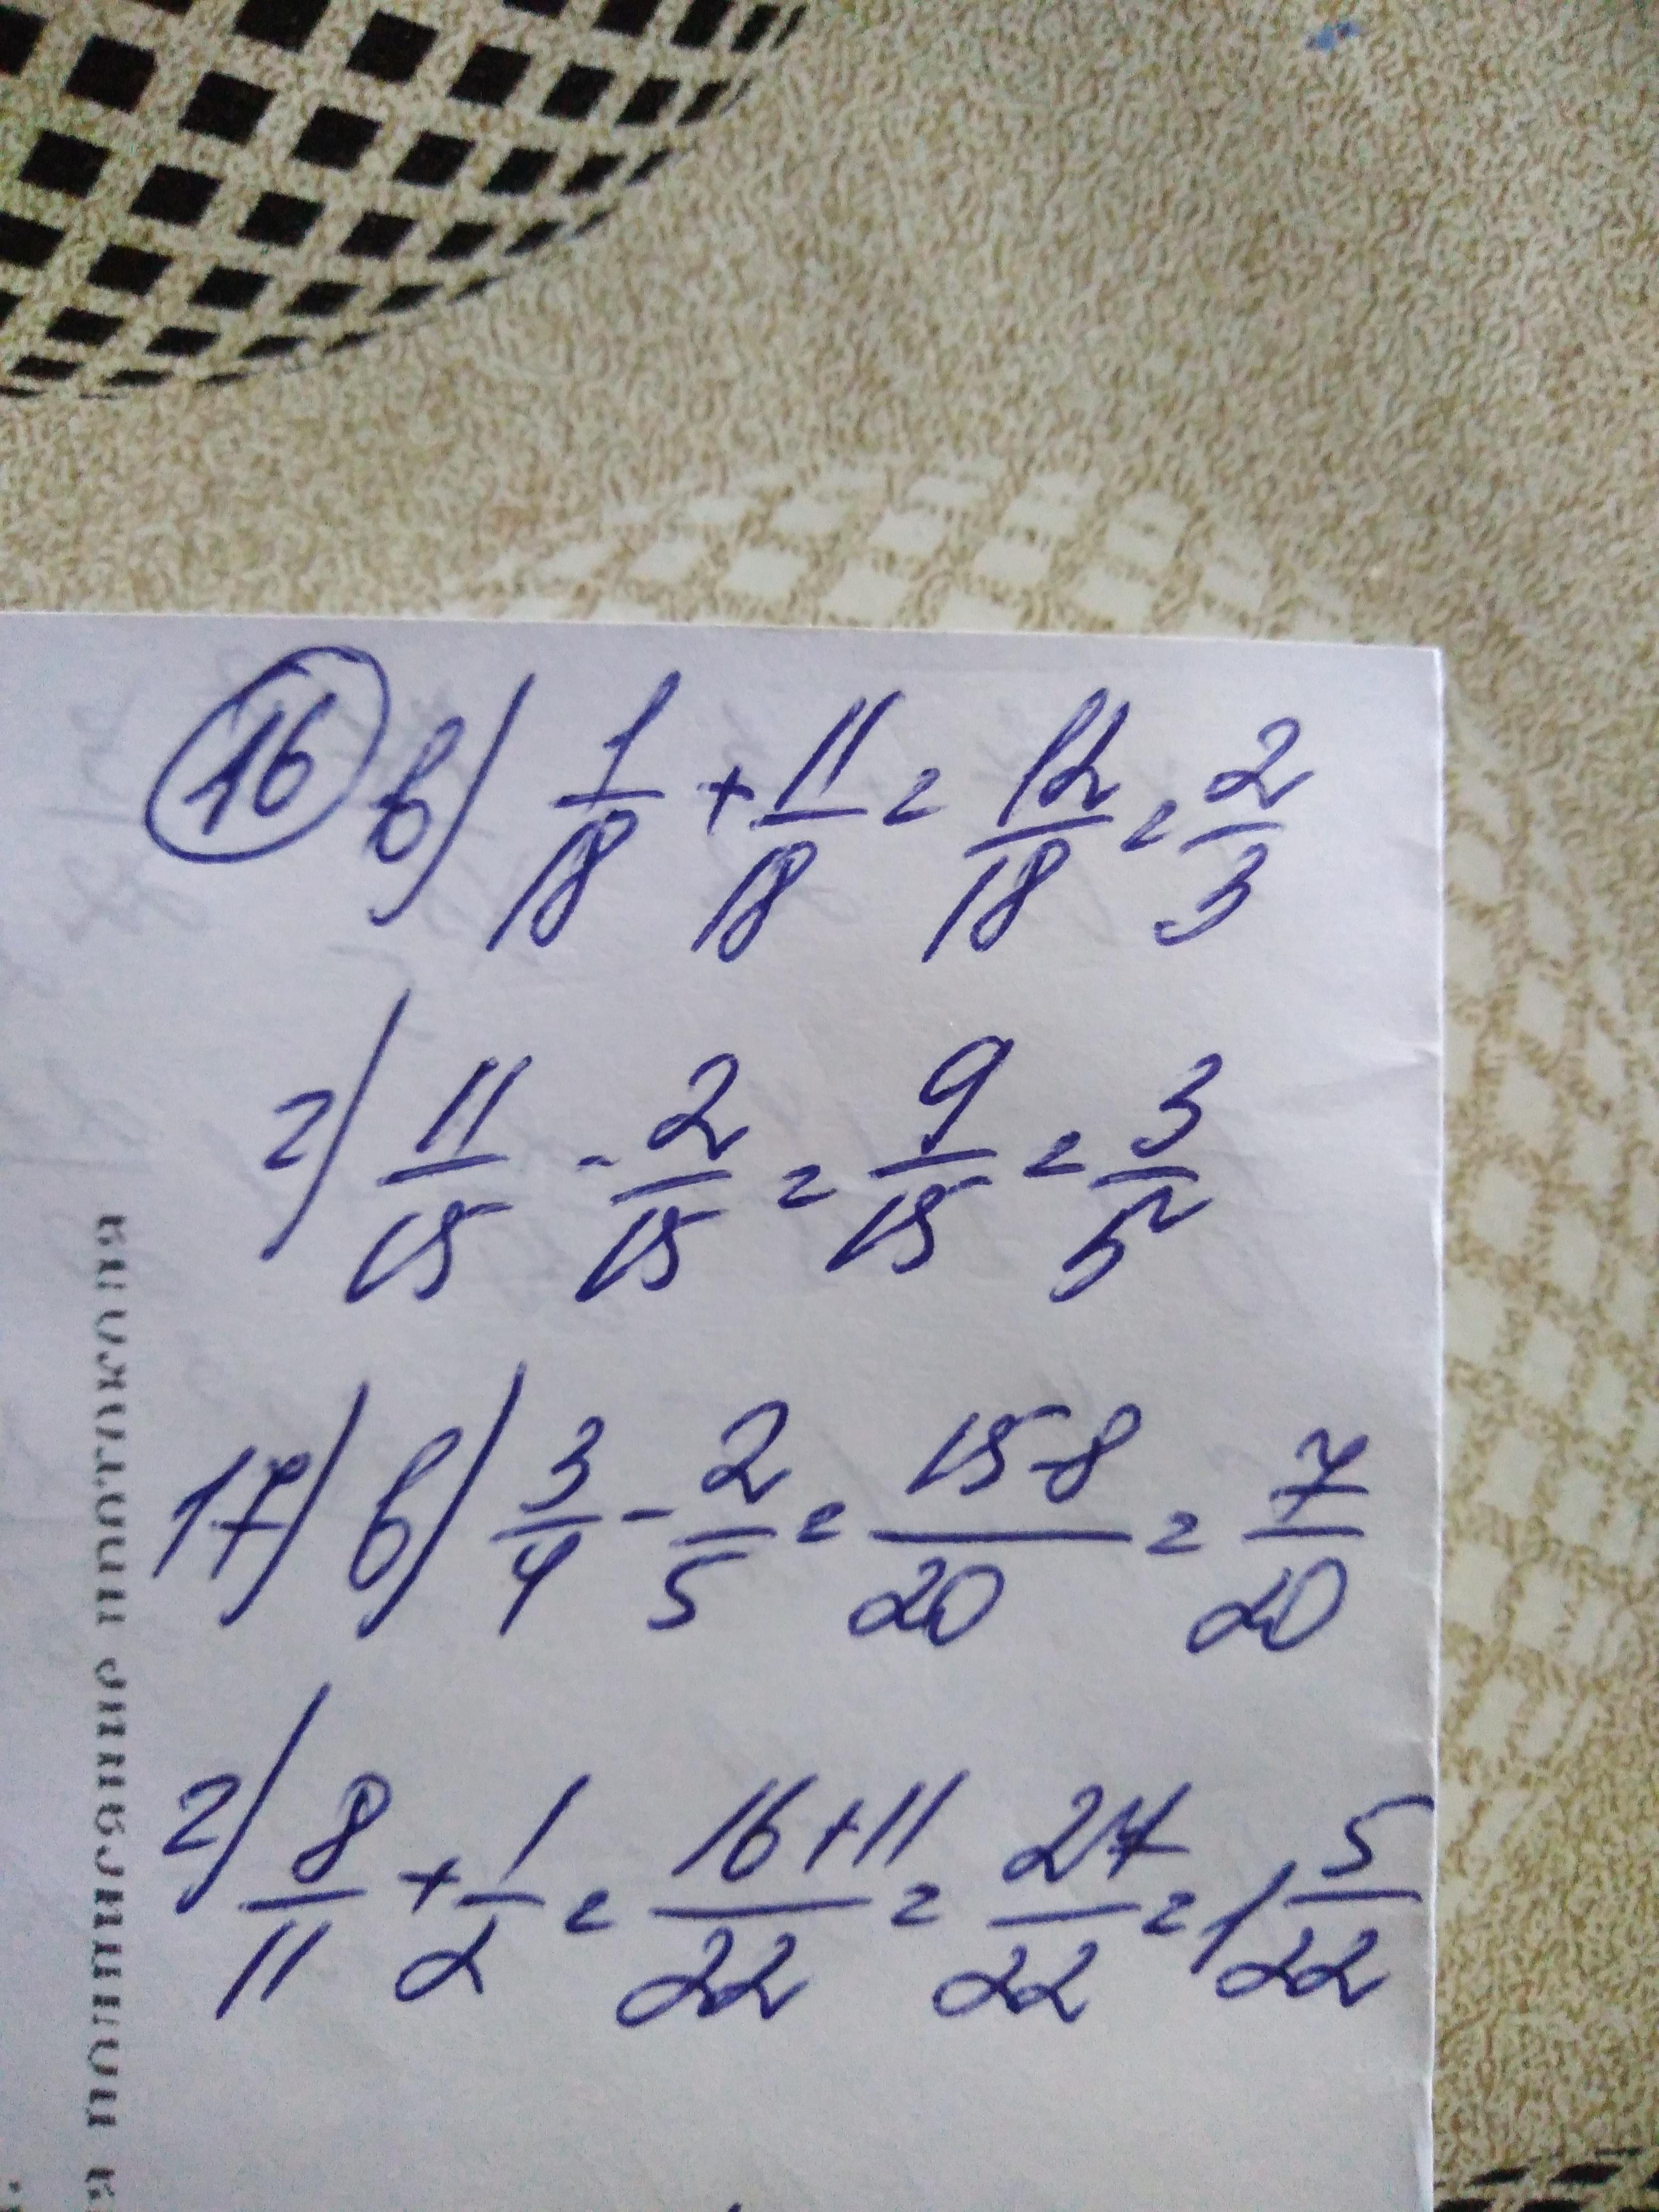 16 в) 1/18 + 11/18 = 12/18 = 2/3
г) 11/15 - 2/15 = 9/15 = 3/5
17) в) 3/4 - 2/5 = 15-8/20 = 7/20
г) 8/11 + 1/2 = 16+11/22 = 27/22 = 1 5/22